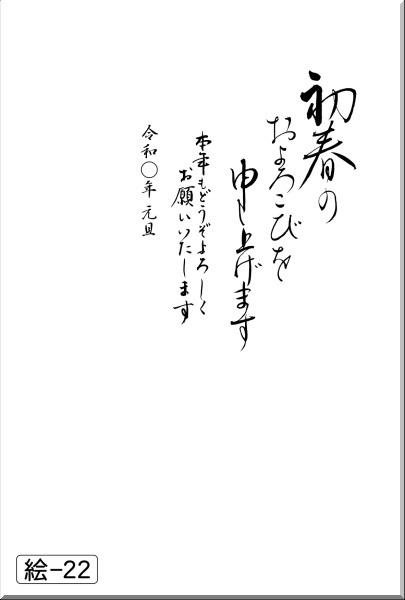 初春の
およろこびを
申し上げます
本年もどうぞよろしく
お願いいたします
令和〇年 元旦
絵-22